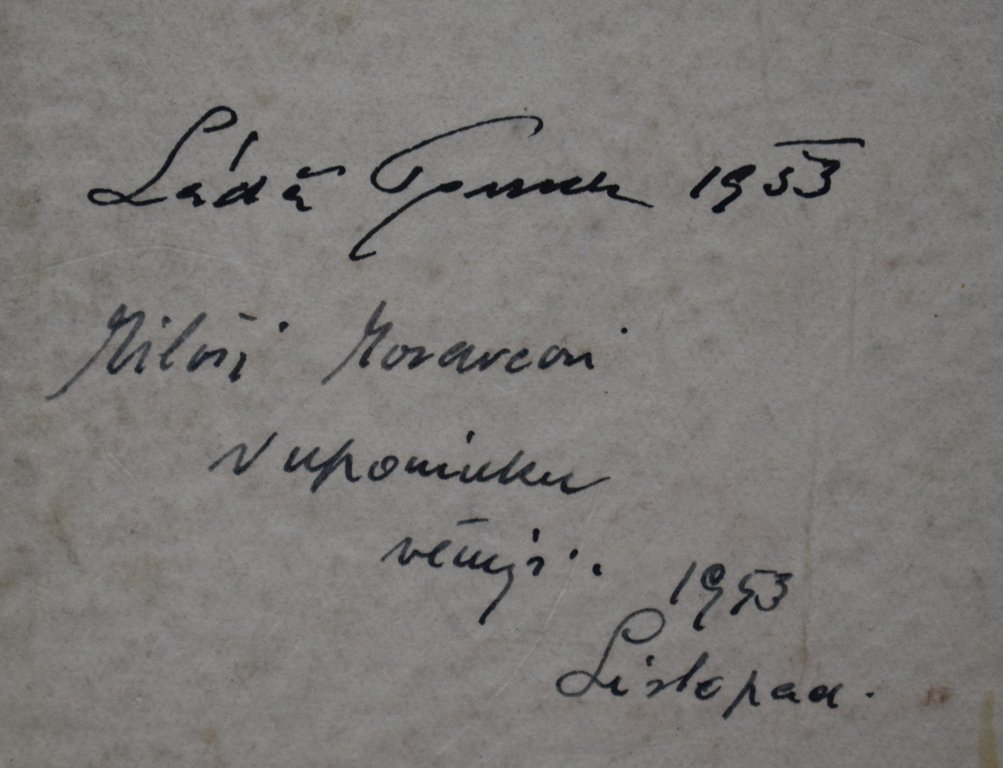 Láďa 1953
Miloši Moravcovi
v upomínku
věnuji.
1953
Listopad.